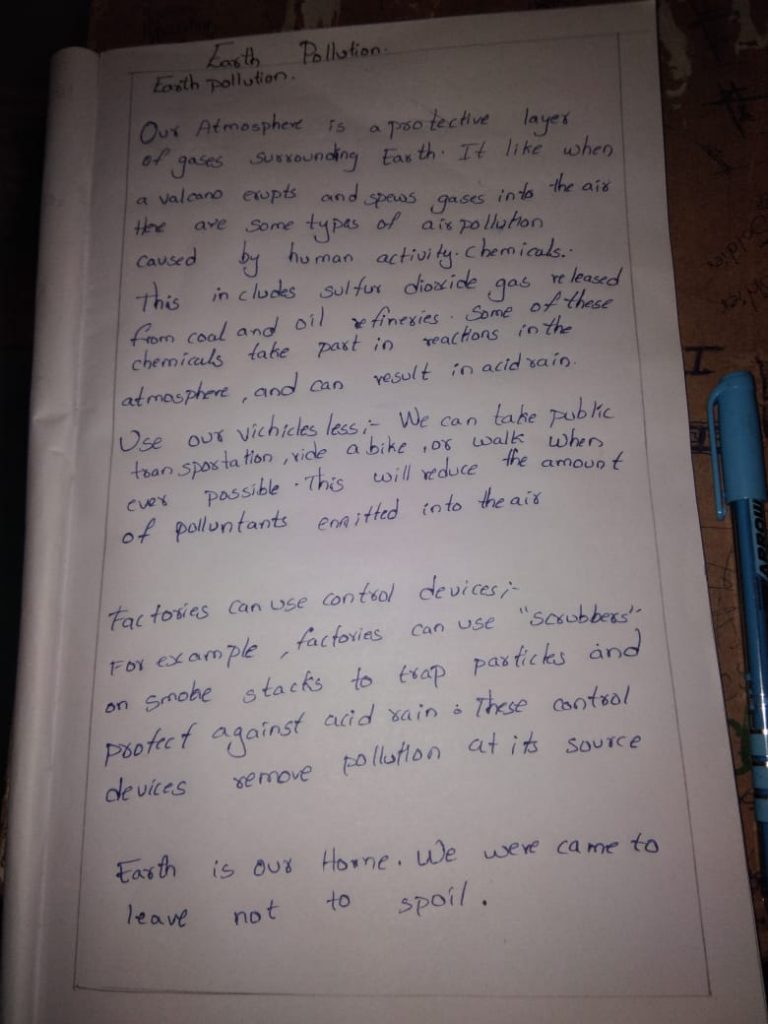 Earth Pollution.
Earth pollution.
Our Atmosphere is a protective layer
of gases surrounding Earth. It like when
a valcano erupts and spews gases into the air
Here are some types of air pollution
caused by human activity. chemicals:-
This includes sulfur dioxide gas released
from coal and oil refineries. Some of these
chemicals take part in reactions in the
atmosphere, and can result in acid rain.
Use our vichicles less;- We can take public
transportation, ride a bike, or walk when
ever possible. This will reduce the amount
of polluntants emitted into the air
Factories can use control devices;-
For example, factories can use "scrubbers"
on smoke stacks to trap particles and
protect against acid rain. These control
devices remove pollution at its source
Earth is our Home. We were came to
leave not to spoil.
ARROW